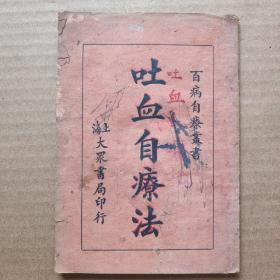 百病自療叢書
吐血
吐血自療法
上海大眾書局印行